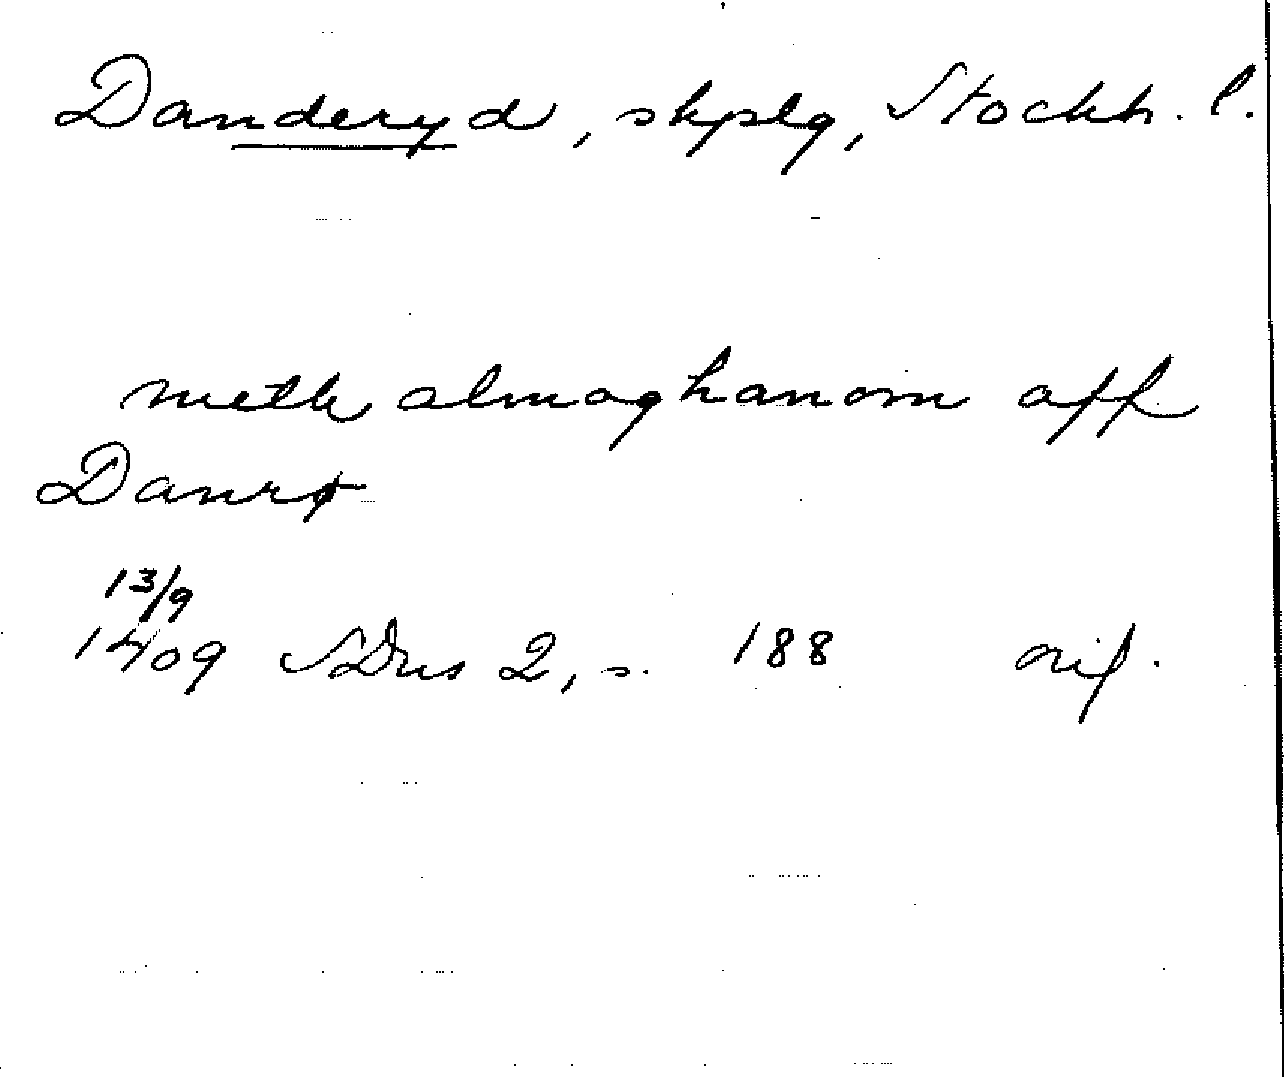 Danderyd, skplg, Stockh. l.
meth almoghanom aff
Danrø
13/9
1409 SDns 2, s. 188 orif.